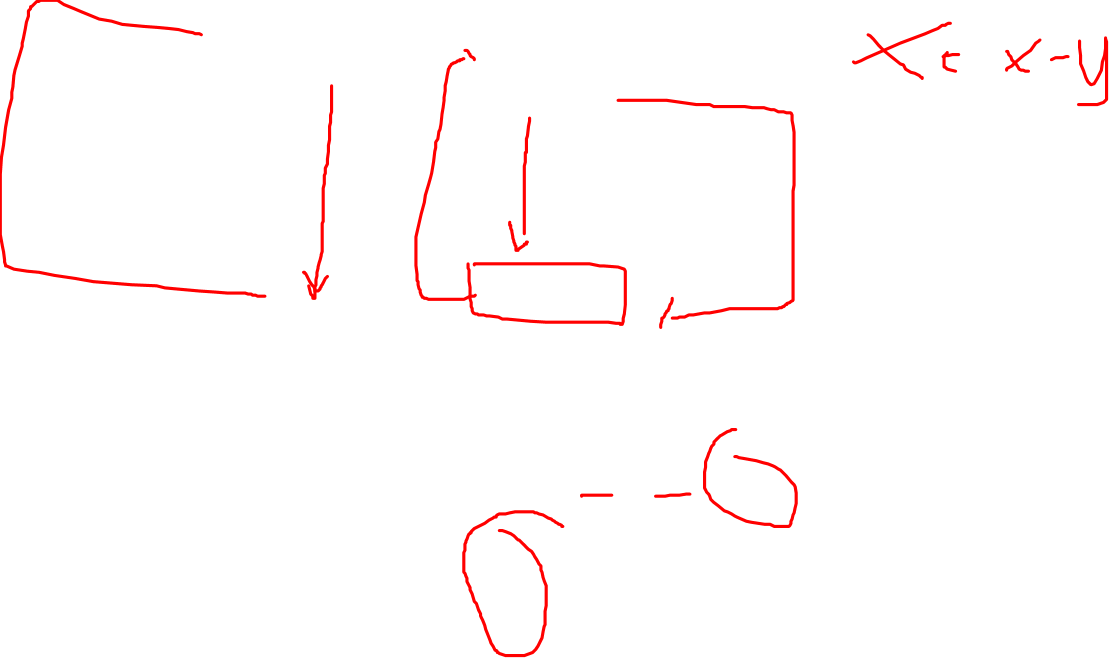 X ← x - y